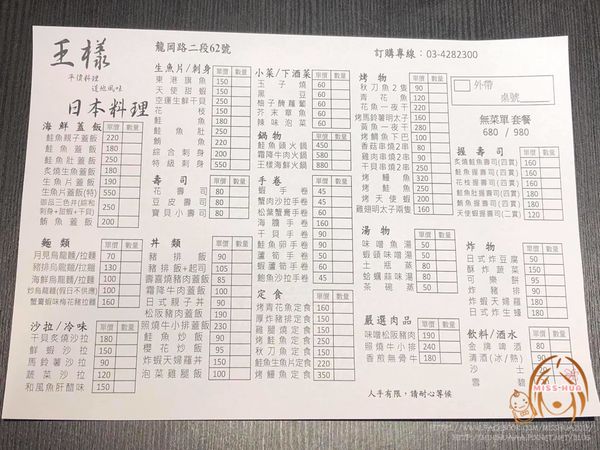 王樣
平價料理
道地風味
日本料理
龍岡路二段62號
訂購專線：03-4282300
外帶
桌號
無菜單 套餐
680 / 980
海鮮蓋飯 單價 數量
鮭魚親子蓋飯 220
鮭魚蓋飯 180
鮭魚肚蓋飯 180
炙燒生魚蓋飯 180
生魚片蓋飯 190
生魚片蓋飯(特) 550
伽品三色丼(綜和
刺身+甜蝦+干貝) 250
鮪魚蓋飯 200
麵類 單價 數量
月見烏龍麵/拉麵 70
豬排烏龍麵/拉麵 130
海鮮烏龍麵/拉麵 110
炒烏龍麵(假日不供應) 100
蟹黃蝦味梅花豬拉麵 160
沙拉/冷味 單價 數量
干貝炙燒沙拉 180
鮮蝦沙拉 150
馬鈴薯沙拉 90
蔬菜沙拉 120
和風魚肝醋味 150
生魚片/刺身 單價 數量
東港旗魚 150
天使甜蝦 150
空運生鮮干貝 250
花枝 150
鮭魚 150
鮭魚肚 200
鮪魚 200
綜合刺身 200
特級刺身 550
壽司 單價 數量
花壽司 80
豆皮壽司 50
寶貝小壽司 80
丼類 單價 數量
豬排飯 90
豬排飯+起司 105
壽喜燒豬肉蓋飯 85
霜降牛肉蓋飯 90
日式親子丼 90
松阪豬肉蓋飯 90
照燒牛小排蓋飯 210
鮭魚炒飯 90
櫻花炒飯 90
炸蝦天婦羅丼 200
泡菜雞飯 100
小菜/下酒菜 單價 數量
玉子燒 60
黑豆 60
柚子醃蘿蔔 60
芥末章魚 60
辣味泡菜 60
鍋物 單價 數量
鮭魚頭火鍋 450
霜降牛肉火鍋 580
王樣海鮮火鍋 880
手卷 單價 數量
蝦手卷 45
蟹肉沙拉手卷 45
松葉蟹膏手卷 60
海膽手卷
干貝手卷 60
鮭魚卵手卷 60
蘆筍手卷 60
蝦蘆筍手卷 60
鮑魚沙拉手卷 50
定食 單價 數量
烤青花魚定食 180
厚炸豬排定食 150
雞腿燒定食 180
烤鮭魚定食 250
秋刀魚定食 180
鮭魚生魚片定食 220
烤鰻魚定食 350
烤物 單價 數量
秋刀魚2隻 90
青花魚 90
花魚一夜干 220
烤馬鈴薯明太子 90
黃魚一夜干 200
烤鯛魚下巴
香菇串燒2串
雞肉串燒2串
干貝串燒2串
烤鰻魚 350
烤鮭魚 150
烤天使蝦
雞翅明太子兩隻 160
湯物 單價 數量
味噌魚湯 50
蝦頭味噌湯 50
土瓶蒸 80
蛤蠣蒜味湯 80
茶碗蒸 50
嚴選肉品 單價 數量
味噌松阪豬肉 150
照燒牛小排 240
香煎無骨牛 180
握壽司 單價 數量
炙燒鮭魚握壽司(四貫) 160
鮭魚握壽司(四貫) 160
花枝握壽司(四貫) 160
綜合握壽司(四貫) 160
鮪魚握壽司(二貫)
天使蝦握壽司(二貫) 160
炸物 單價 數量
日式炸豆腐 50
酥炸蔬菜 150
可樂餅 90
炸豬排 90
炸蝦天婦羅 180
日式炸生蠔 180
飲料/酒水 單價 數量
金牌啤酒
清酒(冰/熱)
沙士
雪碧
人手有限，請耐心等候
MISS-HUA